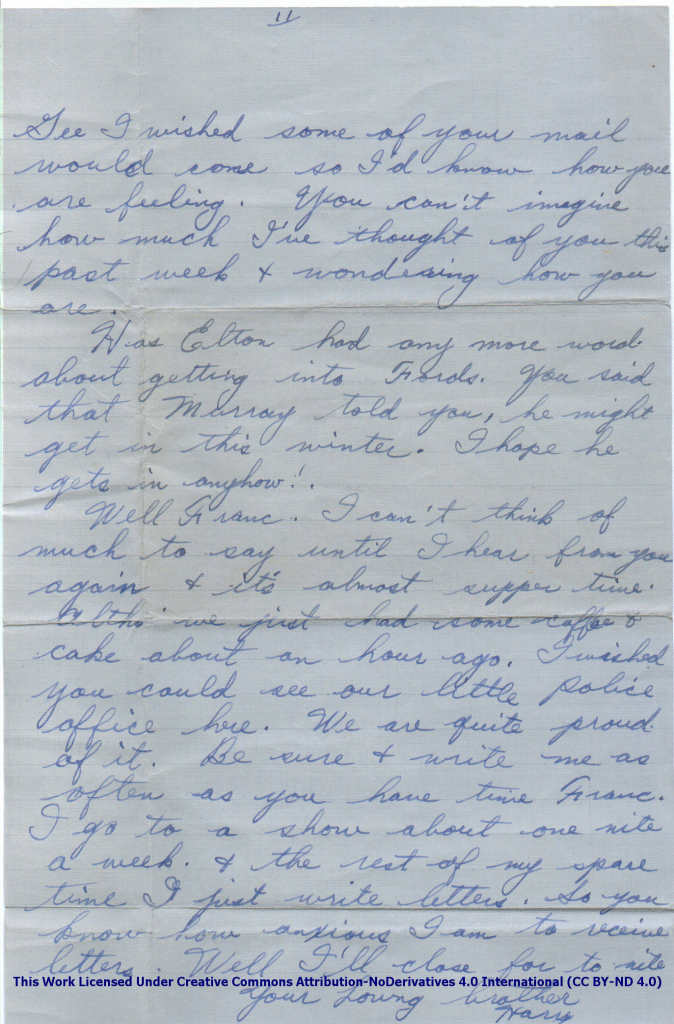 11
Gee I wished some of your mail
would come so I'd know how you
are feeling. You can't imagine
how much I've thought of you this
past week & wondering how you
are.
Has Elton had any more word
about getting into Fords. You said
that Murray told you, he might
get in this winter. I hope he
gets in anyhow!.
Well Franc. I can't think of
much to say until I hear from you
again & it's almost supper time.
Altho' we just had some coffee &
cake about an hour ago. I wished
you could see our little police
office here. We are quite proud
of it. Be sure & write me as
often as you have time Franc.
I go to a show about one nite
a week. & the rest of my spare
time I just write letters. So you
know how anxious I am to receive
letters. Well I'll close for to nite
This Work Licensed Under Creative Commons Attribution-NoDerivatives 4.0 International (CC BY-ND 4.0)
Your Loving brother
Harry